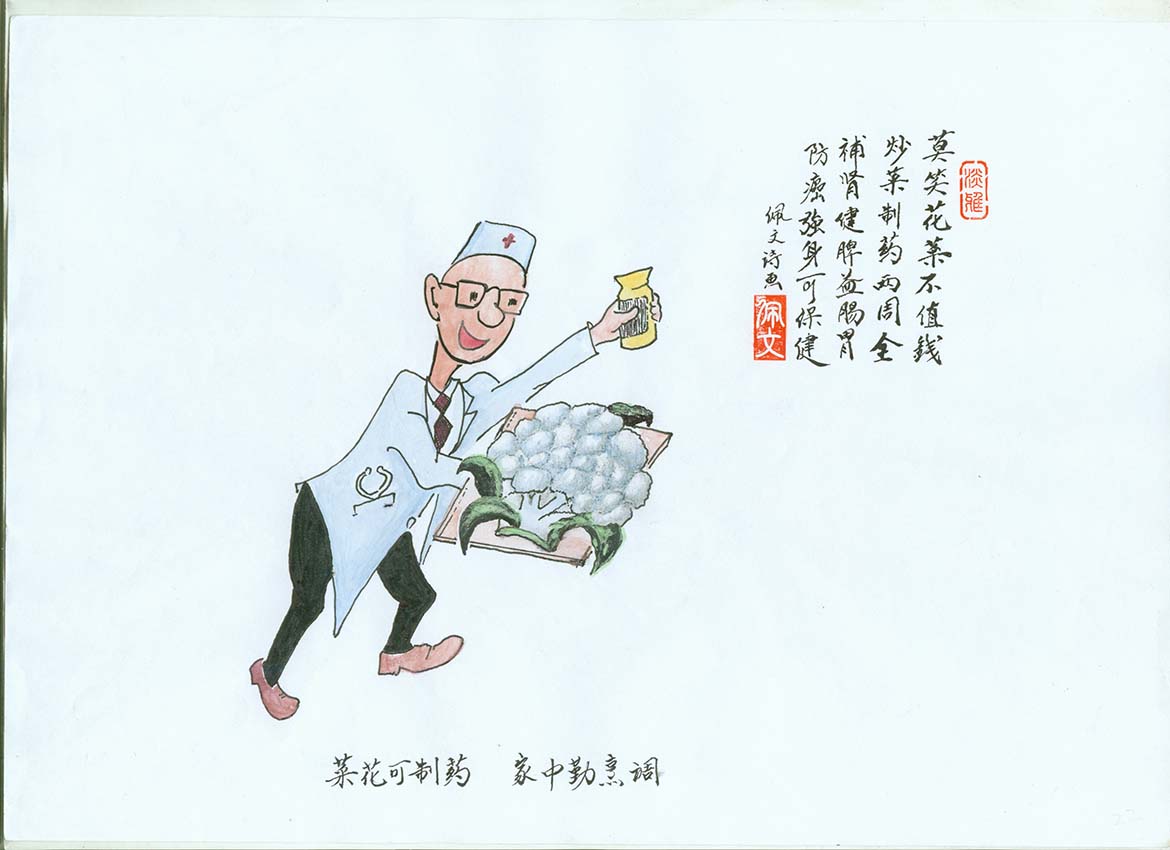 淡雅
莫笑花菜不值钱
炒菜制药两周全
補肾健脾益肠胃
防癌強身可保健
佩文诗画
佩文
菜花可制药 家中勤烹调